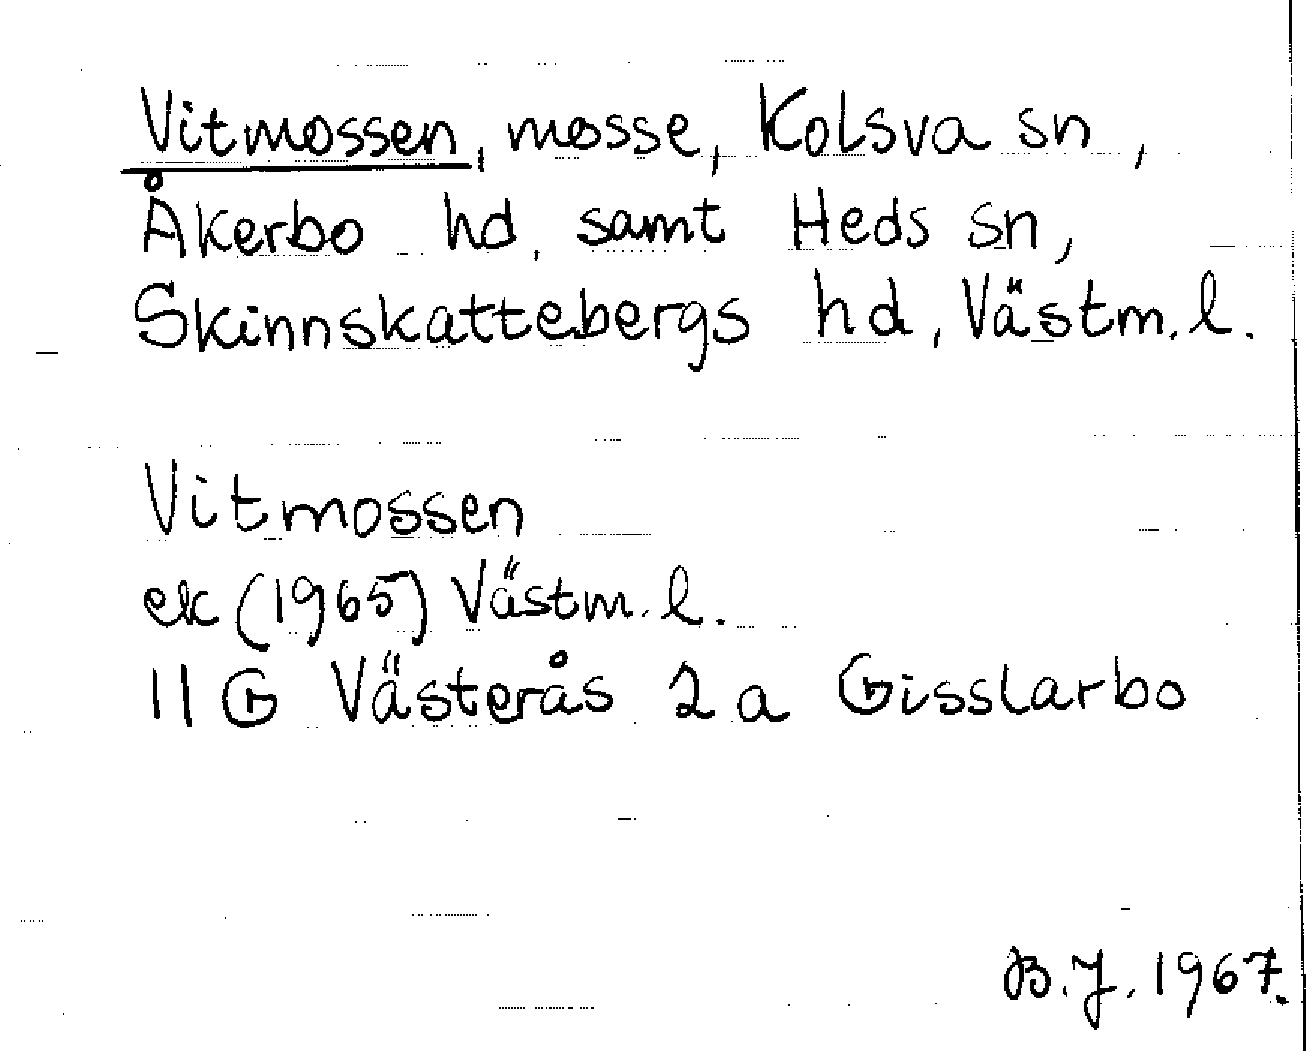 Vitmossen, mosse, Kolsva sn,
Åkerbo hd, samt Heds sn,
Skinnskattebergs hd, Västm. l.
Vitmossen
ek (1965) Västm. l.
11 G Västerås 2 a Gisslarbo
B.J. 1967.